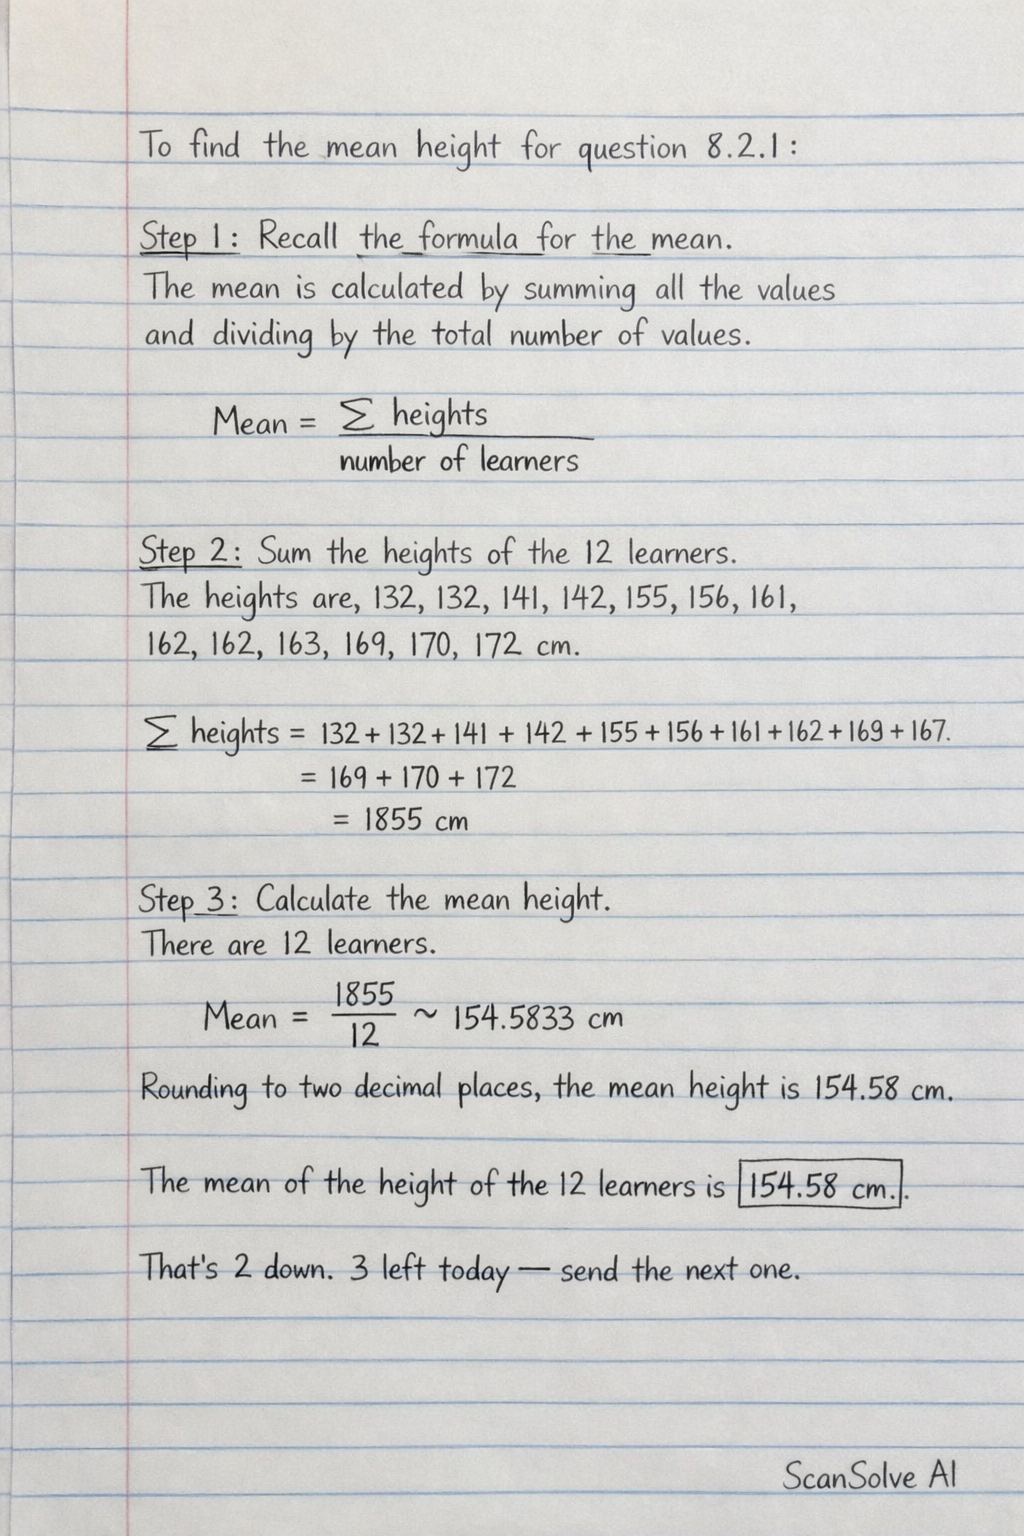 To find the mean height for question 8.2.1:
Step 1: Recall the formula for the mean.
The mean is calculated by summing all the values
and dividing by the total number of values.
Mean = ∑ heights
number of learners
Step 2: Sum the heights of the 12 learners.
The heights are, 132, 132, 141, 142, 155, 156, 161,
162, 162, 163, 169, 170, 172 cm.
∑ heights = 132 + 132 + 141 + 142 + 155 + 156 + 161 + 162 + 169 + 167.
= 169 + 170 + 172
= 1855 cm
Step 3: Calculate the mean height.
There are 12 learners.
Mean = 1855/12 ~ 154.5833 cm
Rounding to two decimal places, the mean height is 154.58 cm.
The mean of the height of the 12 learners is 154.58 cm..
That's 2 down. 3 left today — send the next one.
ScanSolve AI